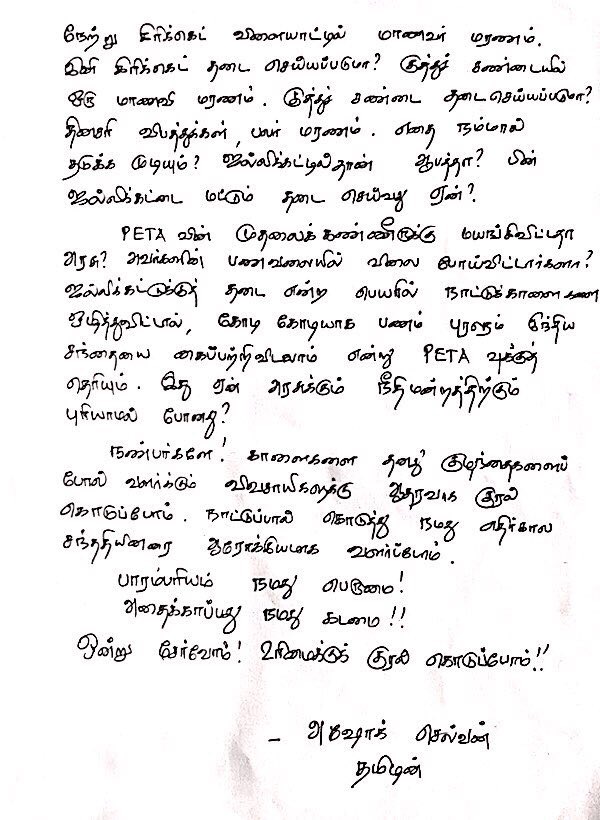 நேற்று கிரிக்கெட் விளையாட்டில் மாணவர் மரணம்.
இனி கிரிக்கெட் தடை செய்யப்படுமா? குத்துச் சண்டையில்
ஒரு மாணவி மரணம். குத்துச் சண்டை தடைசெய்யப்படுமா?
தினசரி விபத்துக்கள், பலர் மரணம். எதை நம்மால்
தடுக்க முடியும்? ஜல்லிக்கட்டில்தான் ஆபத்தா? பின்
ஜல்லிக்கட்டை மட்டும் தடை செய்வது ஏன்?
PETA வின் முதலைக் கண்ணீருக்கு மயங்கிவிட்டதா
அரசு? அவர்களின் பணவலையில் விலை போய்விட்டார்களா?
ஜல்லிக்கட்டுக்குத் தடை என்ற பெயரில் நாட்டுக்காளைகளை
ஒழித்துவிட்டால், கோடி கோடியாக பணம் புரளும் இந்திய
சந்தையை கைப்பற்றிவிடலாம் என்று PETA வுக்குத்
தெரியும். இது ஏன் அரசுக்கும் நீதிமன்றத்திற்கும்
புரியாமல் போனது?
நண்பர்களே! காளைகளை தனது குழந்தைகளைப்
போல் வளர்க்கும் விவசாயிகளுக்கு ஆதரவாக குரல்
கொடுப்போம். நாட்டுப்பால் கொடுத்து நமது எதிர்கால
சந்ததியினரை ஆரோக்கியமாக வளர்ப்போம்.
பாரம்பரியம் நமது பெருமை!
அதைக்காப்பது நமது கடமை!!
ஒன்று சேர்வோம்! உரிமைக்குக் குரல் கொடுப்போம்!!
- அஷோக் செல்வன்
தமிழன்